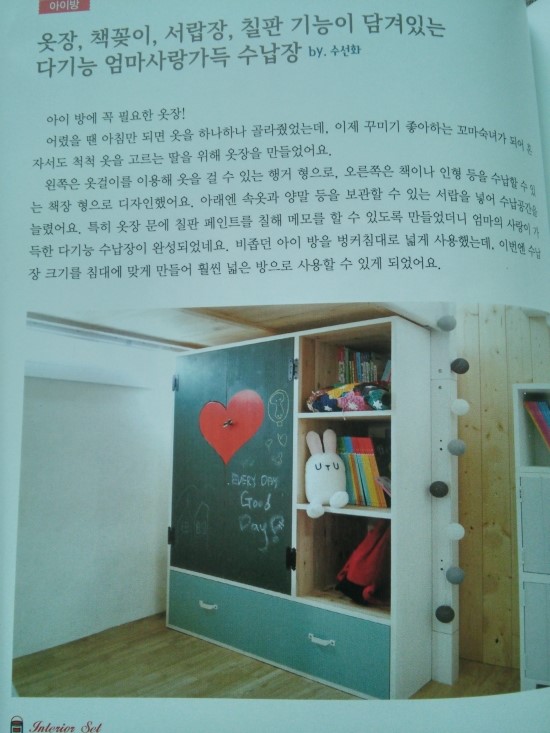 아이방
옷장, 책꽂이, 서랍장, 칠판 기능이 담겨있는
다기능 엄마사랑가득 수납장 by. 수선화
아이 방에 꼭 필요한 옷장!
어렸을 땐 아침만 되면 옷을 하나하나 골라줬었는데, 이제 꾸미기 좋아하는 꼬마숙녀가 되어 혼
자서도 척척 옷을 고르는 딸을 위해 옷장을 만들었어요.
왼쪽은 옷걸이를 이용해 옷을 걸 수 있는 행거 형으로, 오른쪽은 책이나 인형 등을 수납할 수 있
는 책장 형으로 디자인했어요. 아래엔 속옷과 양말 등을 보관할 수 있는 서랍을 넣어 수납공간을
늘렸어요. 특히 옷장 문에 칠판 페인트를 칠해 메모를 할 수 있도록 만들었더니 엄마의 사랑이 가
득한 다기능 수납장이 완성되었네요. 비좁던 아이 방을 벙커침대로 넓게 사용했는데, 이번엔 수납
장 크기를 침대에 맞게 만들어 훨씬 넓은 방으로 사용할 수 있게 되었어요.
EVERY DAY
Good
Day!
Interior Set